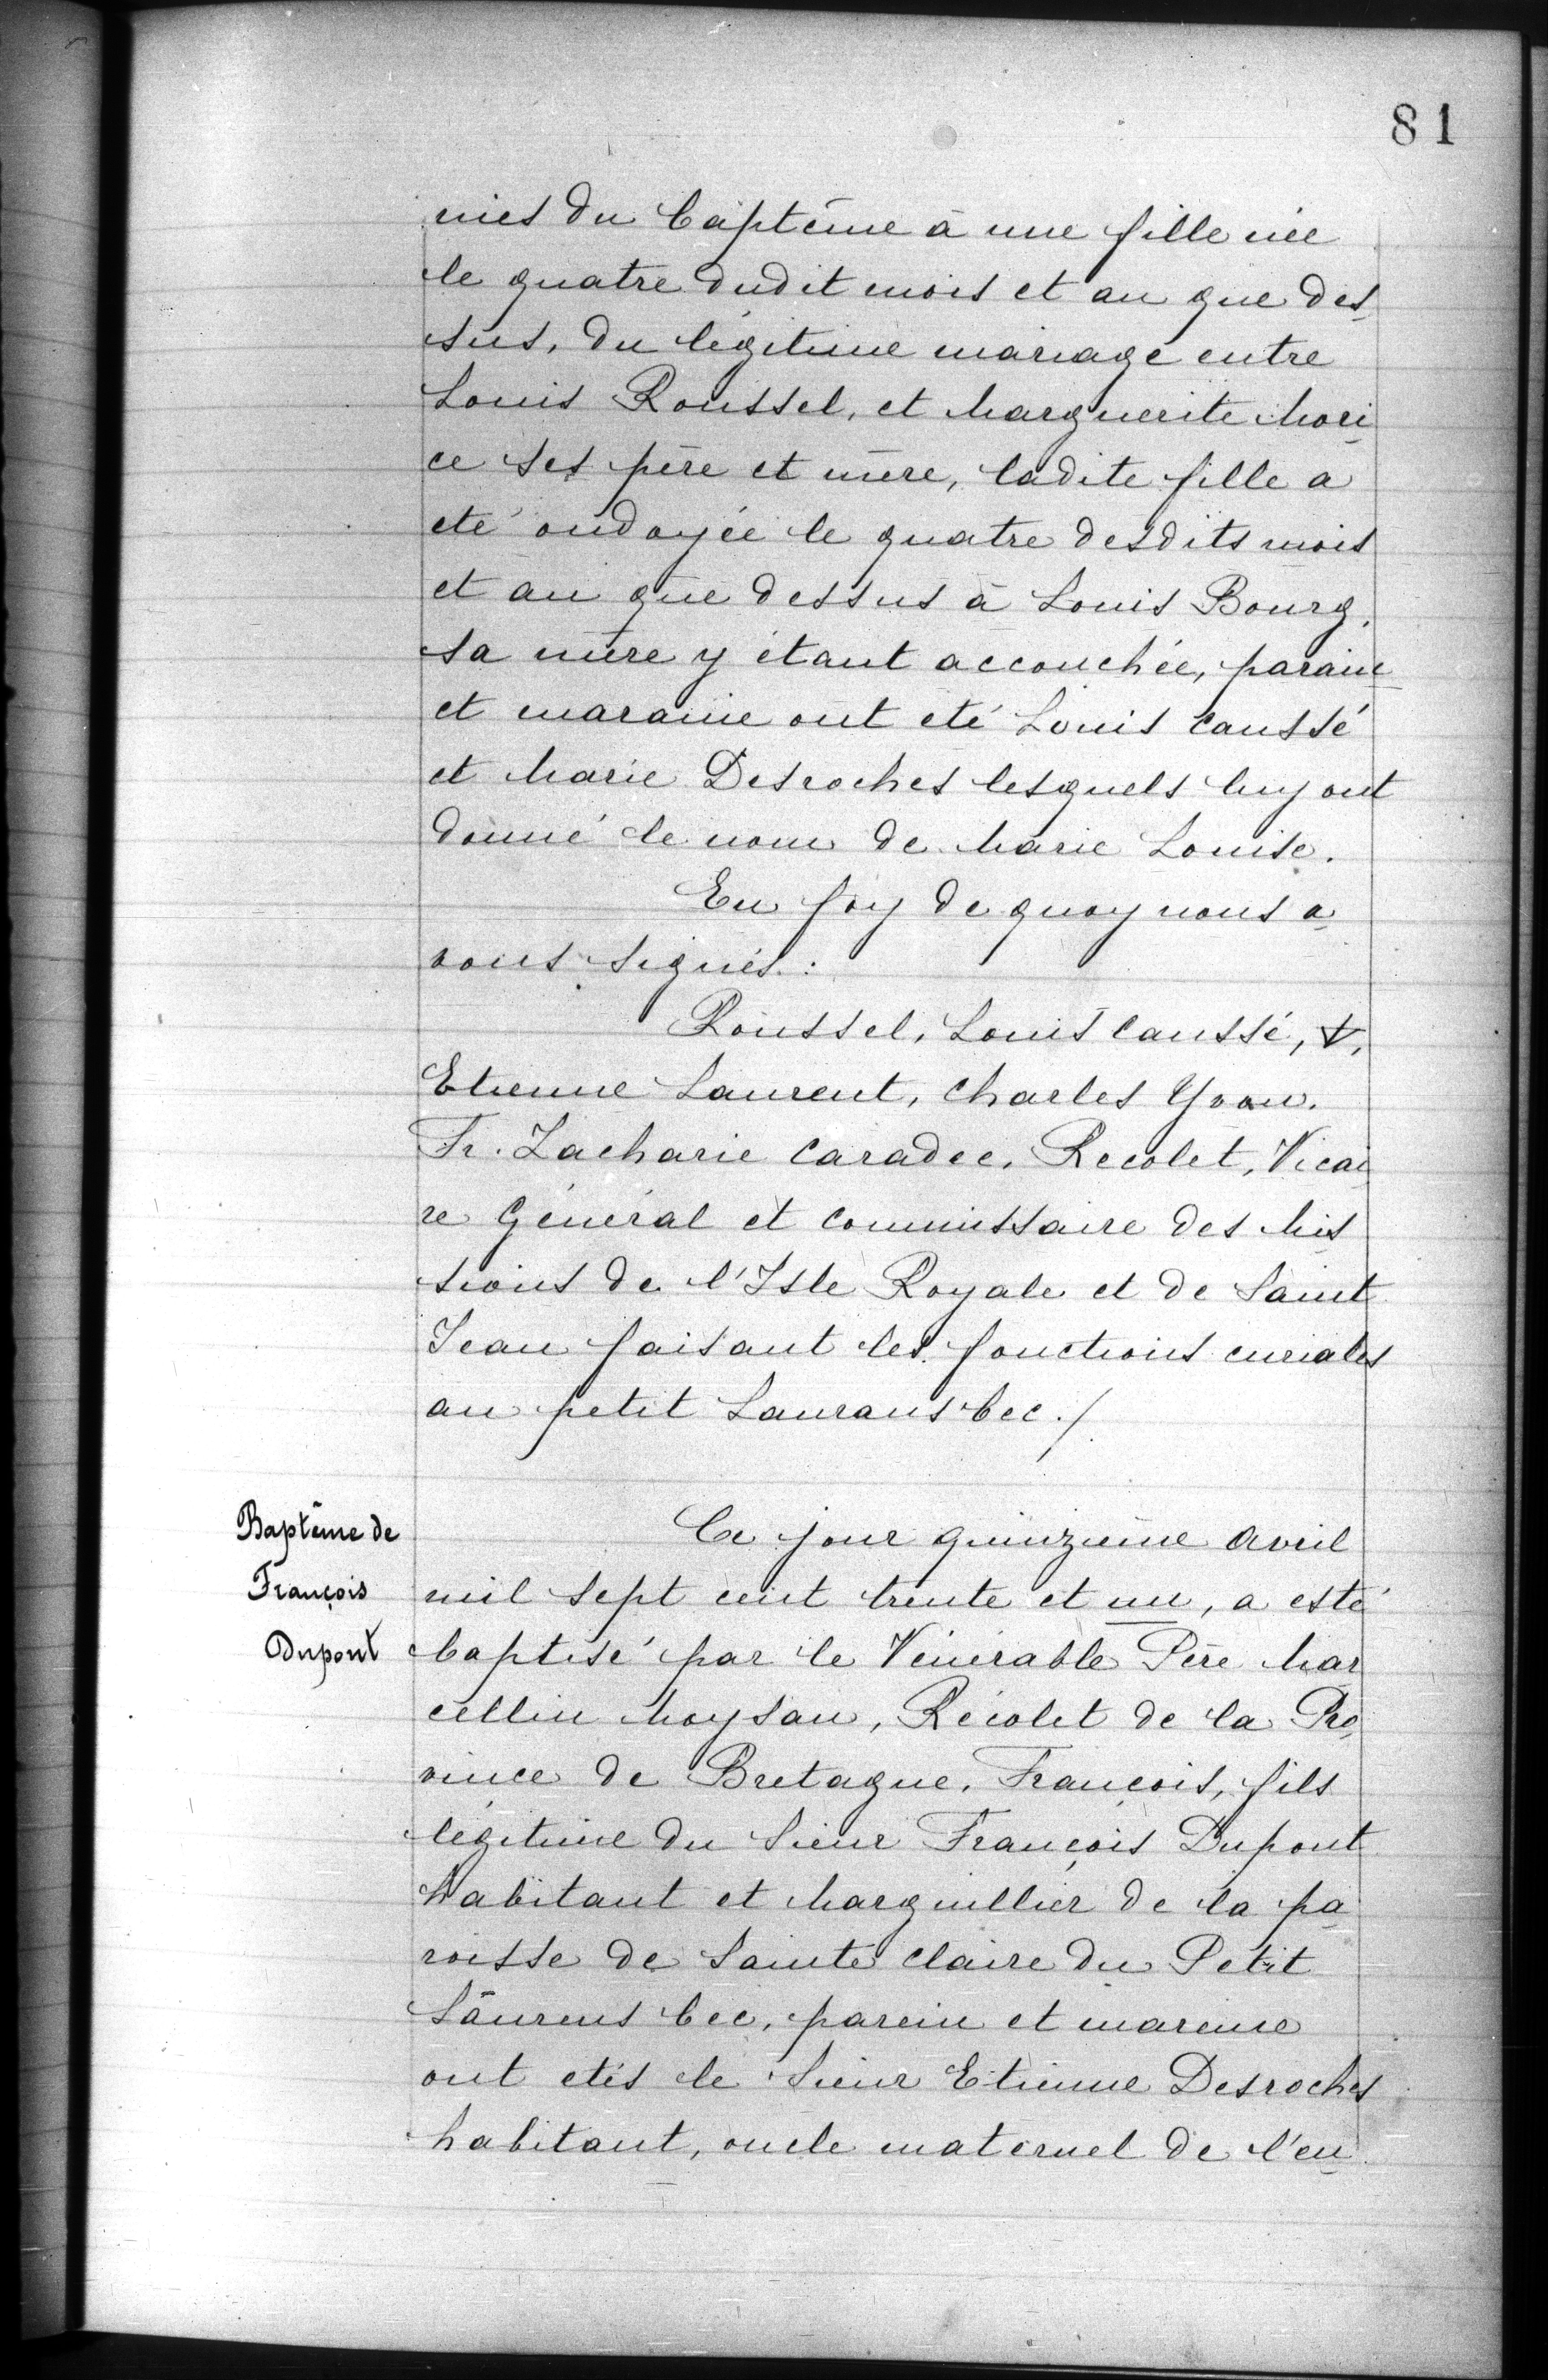 81
nies du baptême à une fille née
le quatre dudit mois et an que des
sus, du légitime mariage entre
Louis Roussel, et Marguerite Mori
ce ses père et mère, ladite fille a
eté ondoyée le quatre desdits mois
et an que dessus à Louis Bourg,
sa mère y étant accouchée, parain
et maraine ont eté Louis Caussé
et Marie Desroches lesquels luy ont
donné le nom de Marie Louise.
En foy de quoy nous a
vons signés :
Roussel, Louis Caussé, +,
Etienne Laurent, Charles Yvon.
Fr. Zacharie Caradec, Recolet, Vicai
re Général et Commissaire des Mis
sions de l'Isle Royale et de Saint
Jean faisant les fonctions curiales
au petit Lauransbec ./
Baptême de
François
Dupont
Ce jour quinzième avril
mil sept cent trente et un, a esté
baptisé par le Vénérable Père Mar
cellin Moysan, Récolet de la Pro
vince de Bretagne, François, fils
légitime du Sieur François Dupont
habitant et Marguillier de la pa
roisse de Sainte Claire du Petit
Laurens bec, parein et mareine
ont etés le Sieur Etienne Desroches
habitant, oncle maternel de l'en